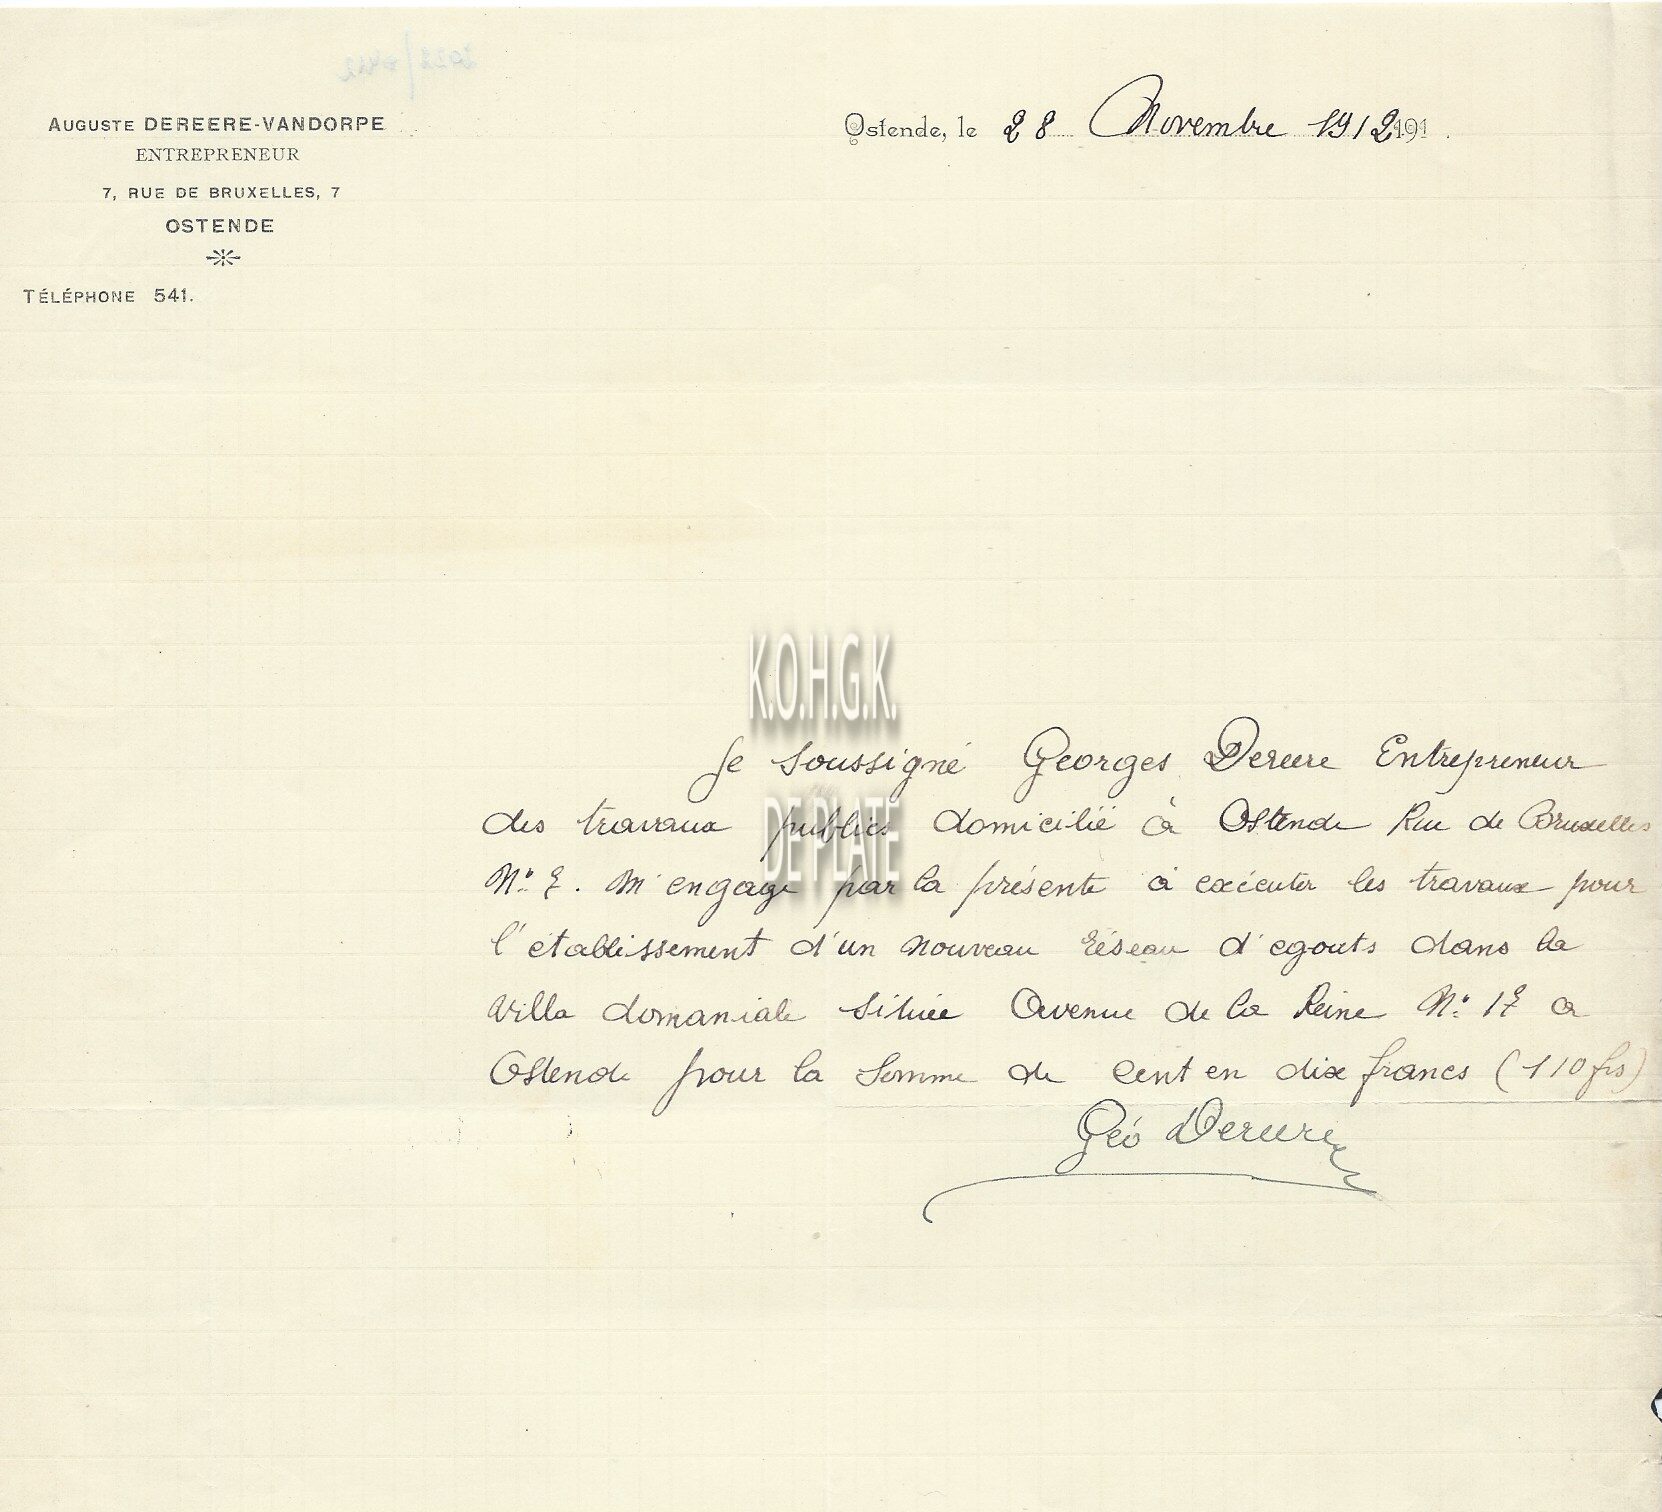 2022/0412
AUGUSTE DEREERE-VANDORPE
ENTREPRENEUR
7, RUE DE BRUXELLES, 7
OSTENDE
TÉLÉPHONE 541.
Ostende, le 28 Novembre 1912 191 .
K.O.H.G.K.
DE PLATE
Je soussigné Georges Dereere Entrepreneur
des travaux publics domicilié à Ostende Rue de Bruxelles
No 7. M'engage par la présente à exécuter les travaux pour
l'établissement d'un nouveau réseau d'egouts dans la
Villa domaniale située Avenue de la Reine No: 17 a
Ostende pour la Somme de Cent en dix francs (110 frs)
Géo Dereere